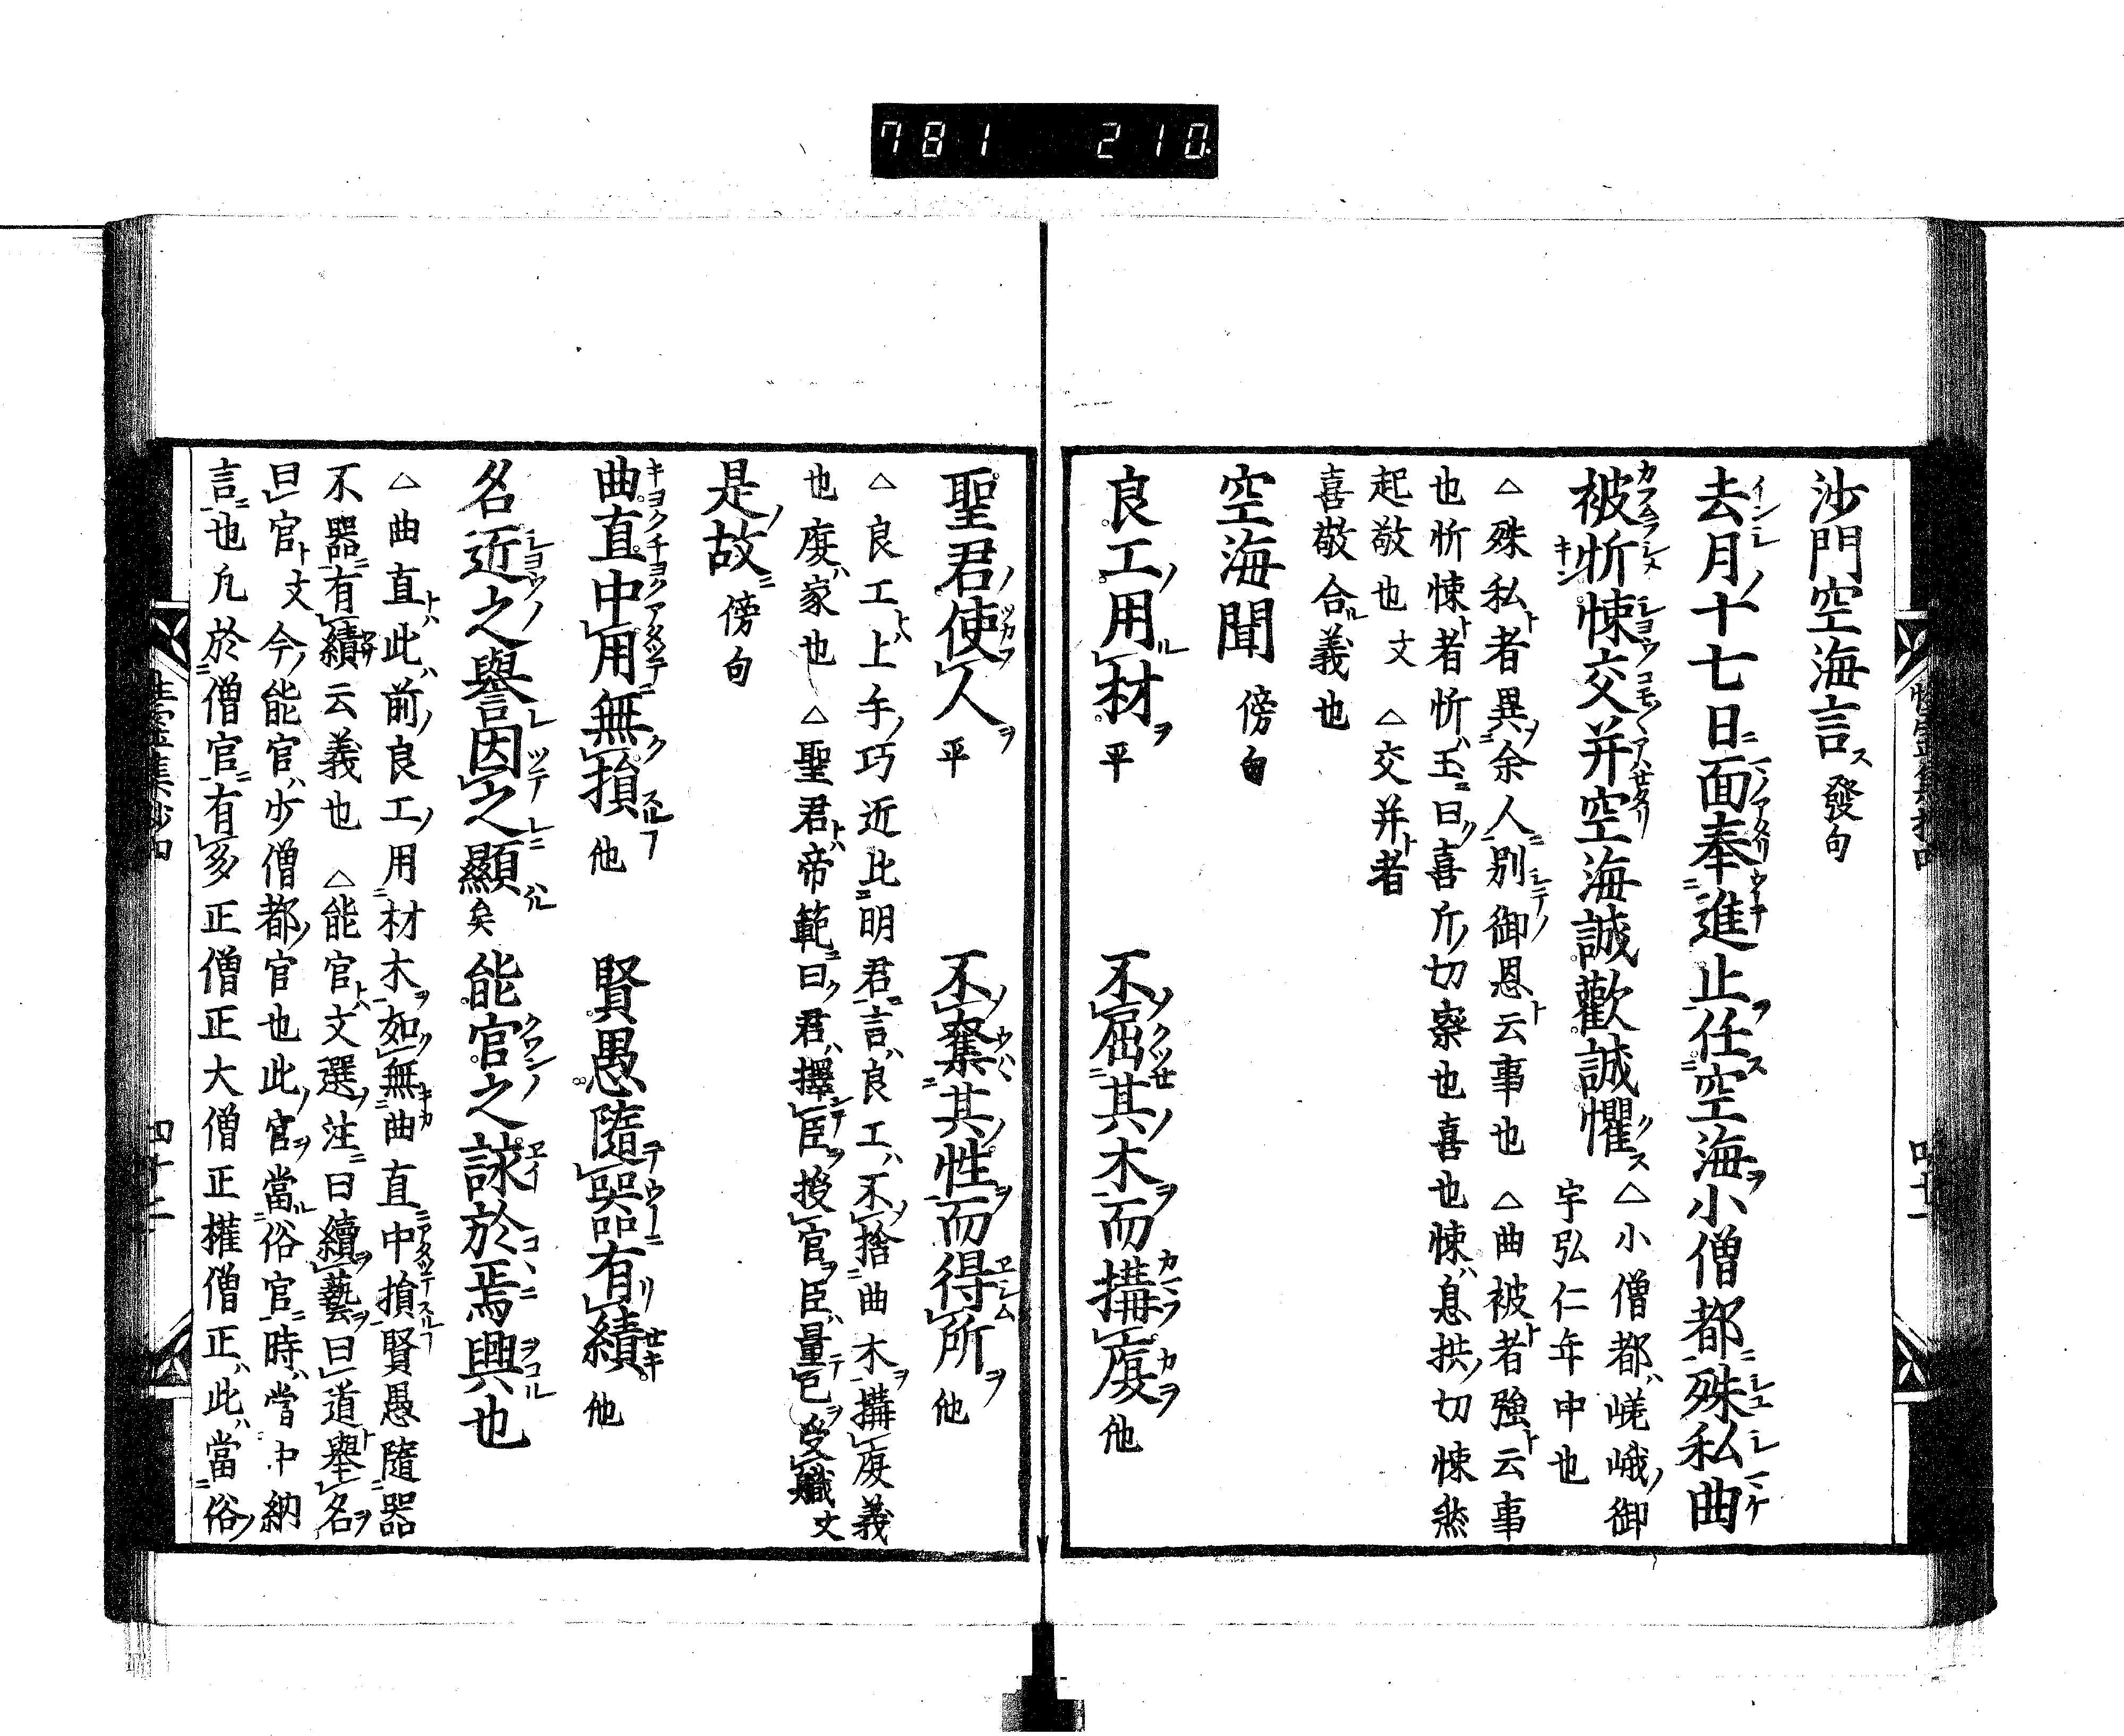 781 210
沙門空海言ス 發句
去月ノ十七日ニ面奉進止任空海ヲ小僧都ニ殊私曲
被忻悚交并空海誠歡誠懼 △小僧都ハ嵯峨ノ御
宇弘仁年中也
△殊私ト者異ノ余人ニ別御恩ト云事也 △曲被ト者強ト云事
也忻悚ト者忻ハ玉ニ曰ク喜斤ノ切察也喜也悚ハ息拱ノ切悚然
起敬也文 △交并ト者
喜敬合ル義也
空海聞 傍句
良工ノ用ル材ヲ 平 不屈其ノ木ヲ而搆廈ヲ 他
聖君ノ使人ヲ 平 不奪其ノ性ヲ而得所ヲ 他
△良工トハ上手ノ巧近比ニ明君ニ言ハ良工ハ不捨曲木ヲ搆廈義
也廈ハ家也 △聖君トハ帝範ニ曰ク君ハ擇臣ヲ授官ヲ臣ハ量テ己ヲ受職文
是ノ故ニ 傍句
曲直中用無損 他 賢愚隨器有績 他
名近之譽因之顯矣 能官之詠於焉興也
△曲直トハ此ハ前ノ良工ノ用材木ヲ如無曲直中損賢愚隨器
不器ニ有績云義也 △能官トハ文選ノ注ニ曰續藝ヲ曰道ト擧名ヲ
曰官ト文今ノ能官ハ少僧都ノ官也此ノ官ヲ當ル俗官ニ時ハ當中納
言ニ也凢於僧官ニ有多正僧正大僧正權僧正ハ此ハ當俗ノ
四十二